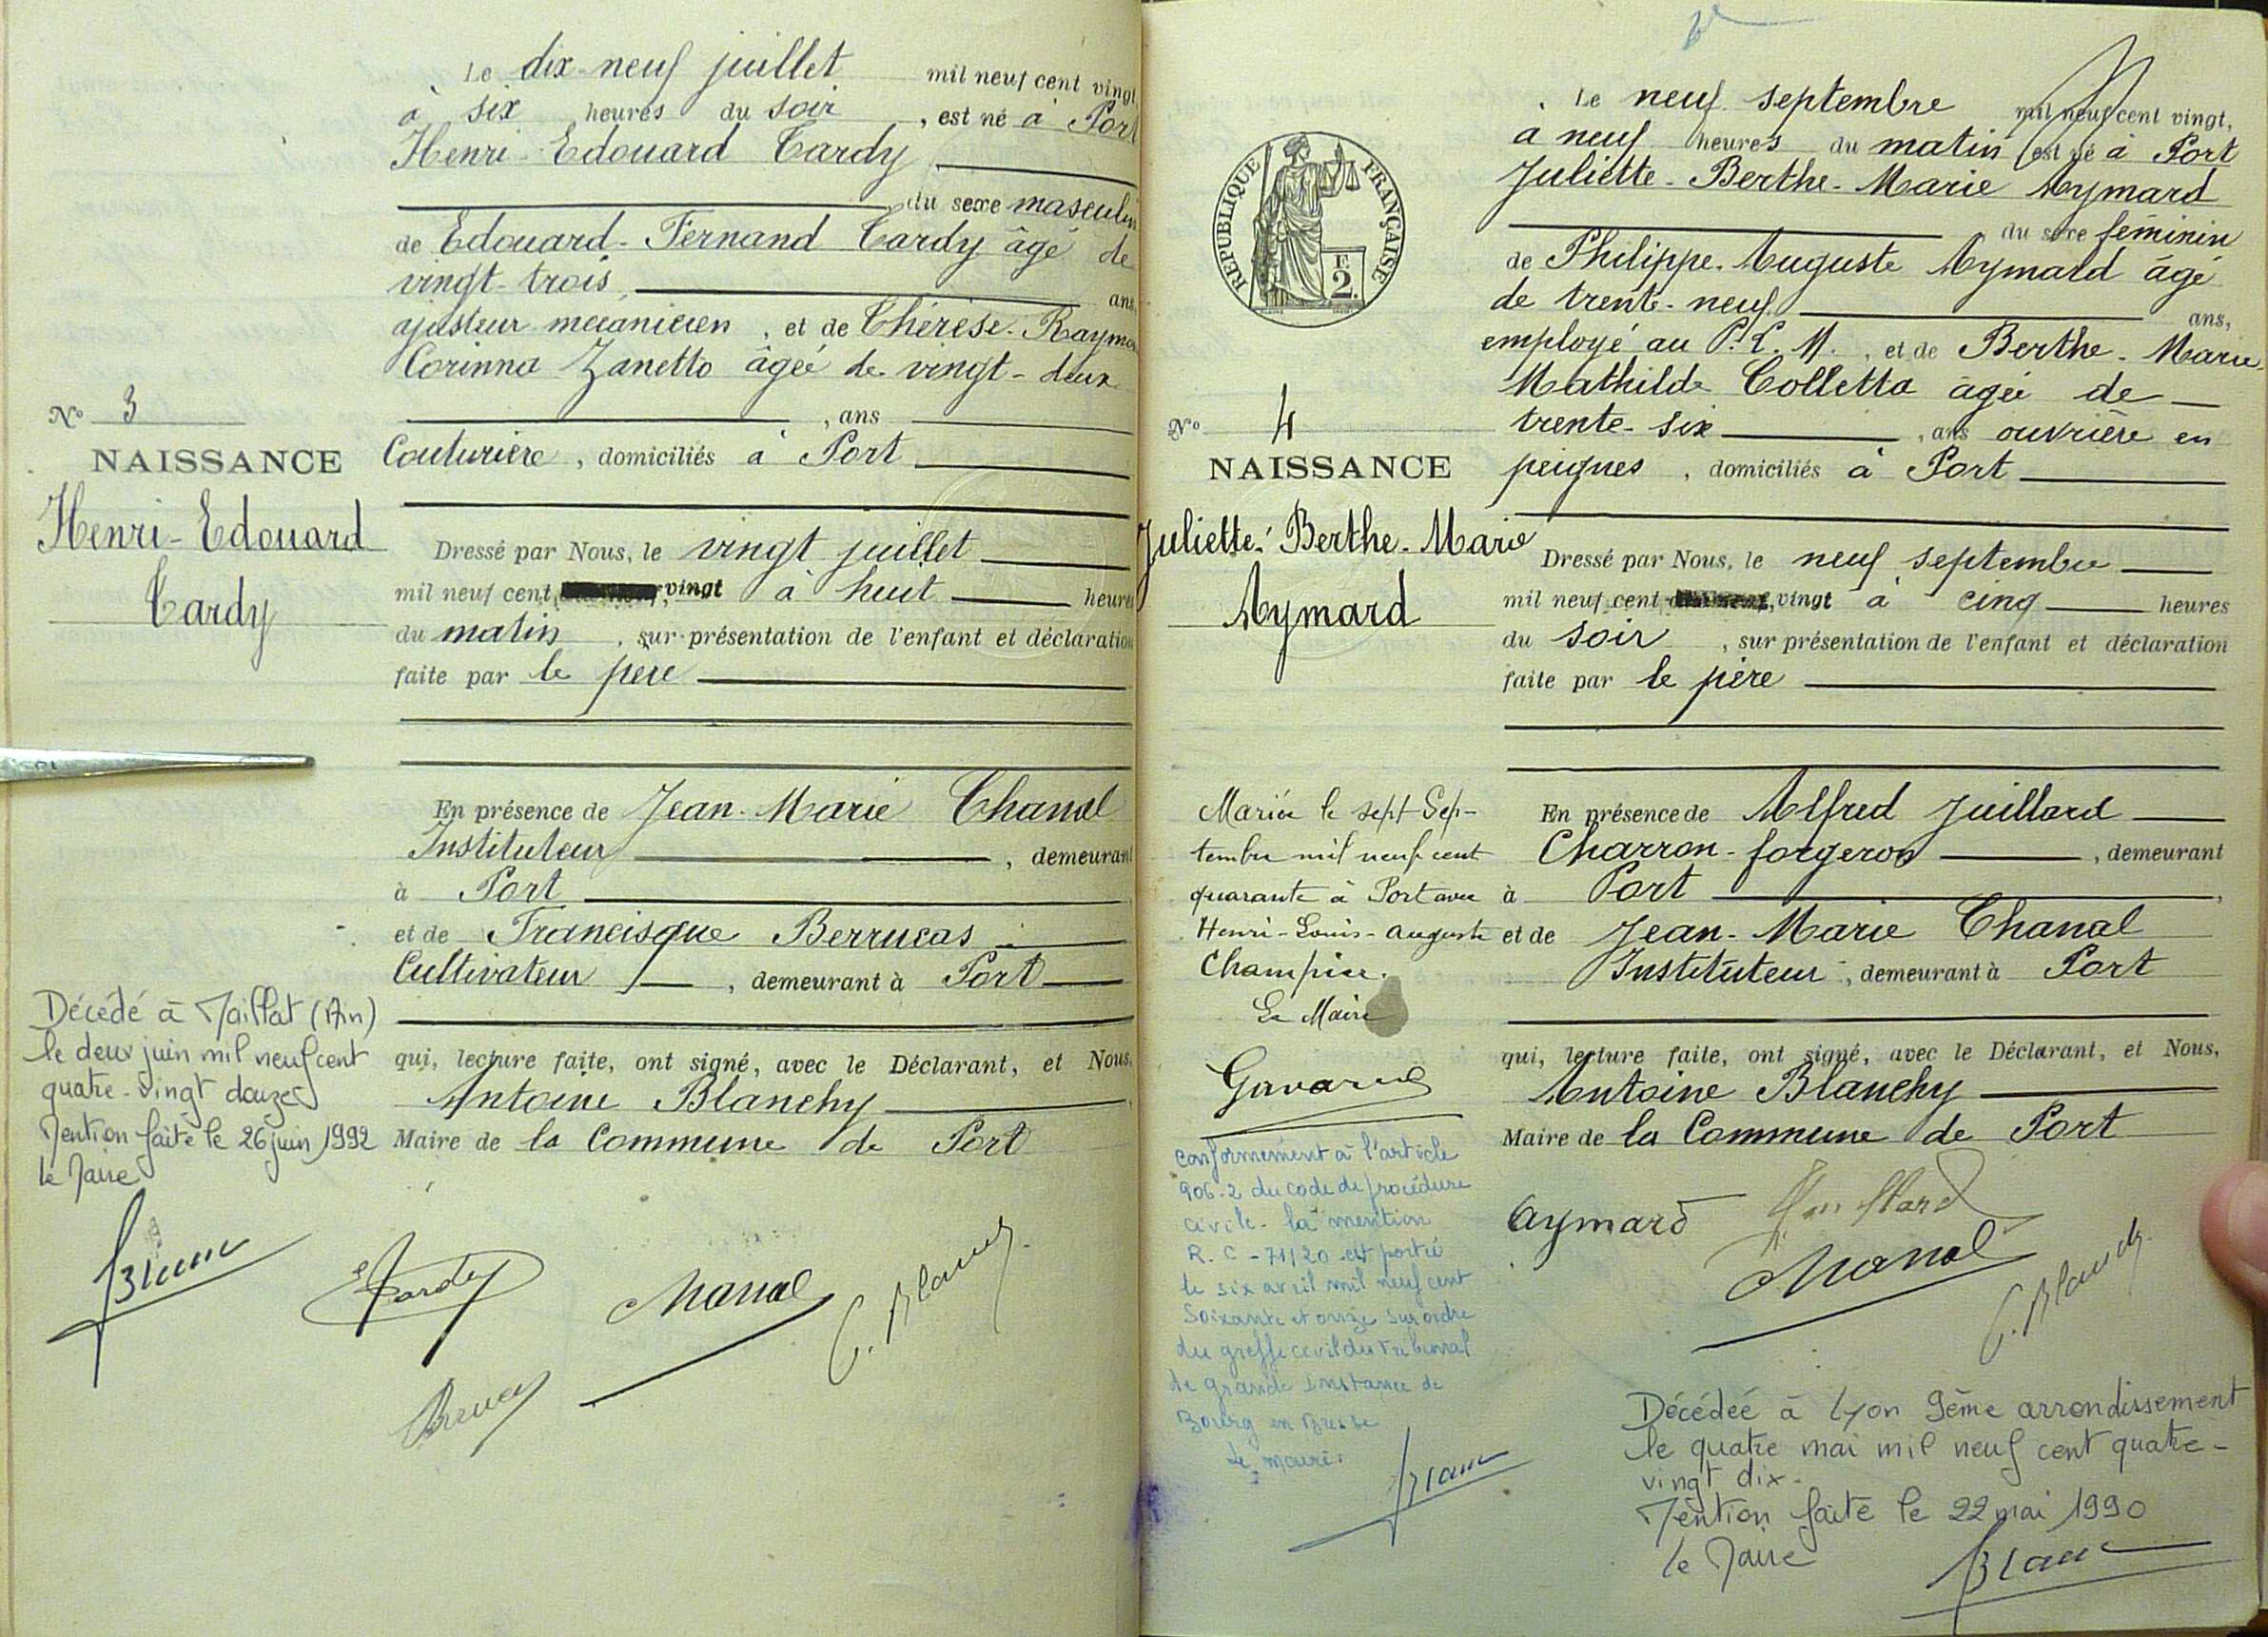 Le dix-neuf juillet mil neuf cent vingt,
à six heures du soir , est né à Port
Henri-Edouard Tardy
du sexe masculin
de Edouard-Fernand Tardy âgé de
vingt-trois ans,
ajusteur mecanicien , et de Thérèse-Raymo
Corinna Zanetto âgée de vingt-deux
, ans
Couturière , domiciliés à Port
No 3
NAISSANCE
Henri-Edouard
Tardy
Dressé par Nous, le vingt juillet
mil neuf cent vingt à huit heures
du matin , sur présentation de l'enfant et déclaration
faite par le père
En présence de Jean-Marie Chanal
Instituteur , demeurant
à Port
et de Francisque Berrucas
Cultivateur , demeurant à Port
qui, lecture faite, ont signé, avec le Déclarant, et Nous,
Antoine Blanchy
Maire de la Commune de Port
Décédé à Maillat (Ain)
le deux juin mil neuf cent
quatre-vingt douze
Mention faite le 26 juin 1992
le Maire
E Tardy
Chanal
Blanchy
Le neuf septembre mil neuf cent vingt,
a neuf heures du matin est né à Port
Juliette-Berthe-Marie Aymard
du sexe féminin
de Philippe-Auguste Aymard âgé
de trente-neuf ans,
employé au P. L. M. , et de Berthe-Marie
Mathilde Colletta âgée de
trente-six , ans ouvrière en
peignes , domiciliés à Port
REPUBLIQUE FRANÇAISE
2
No 4
NAISSANCE
Juliette-Berthe-Marie
Aymard
Dressé par Nous, le neuf septembre
mil neuf cent vingt à cinq heures
du soir , sur présentation de l'enfant et déclaration
faite par le père
En présence de Alfred Juillard
Charron-forgeron , demeurant
à Port
et de Jean-Marie Chanal
Instituteur , demeurant à Port
qui, lecture faite, ont signé, avec le Déclarant, et Nous,
Antoine Blanchy
Maire de la Commune de Port
Mariée le sept Sep-
tembre mil neuf cent
quarante à Port avec
Henri-Louis-Auguste
Champier.
Le Maire
conformément à l'article
906-2 du code de procédure
civile- la mention
R. C - 71/20 est portée
le six avril mil neuf cent
Soixante et onze sur ordre
du greffe civil du Tribunal
de grande instance de
Bourg en Bresse
Le maire:
Aymard
Juillard
Chanal
Blanchy
Décédée à Lyon 9ème arrondissement
le quatre mai mil neuf cent quatre-
vingt dix-
Mention faite le 22 mai 1990
le Maire